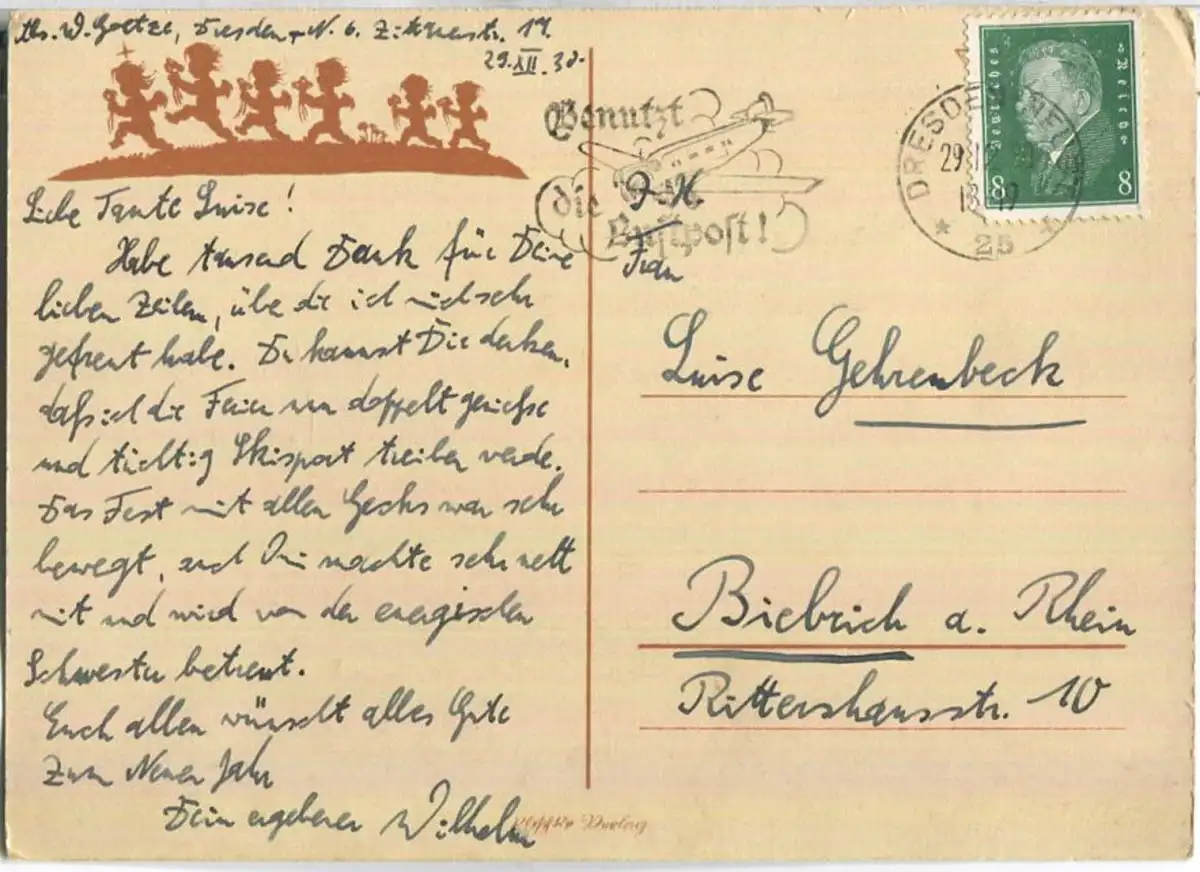 Abs. W. Goetze, Dresden-N. 6. Zittauerstr. 17.
29. XII. 30.
Liebe Tante Luise!
Habe tausend Dank für Deine
lieben Zeilen, über die ich mich sehr
gefreut habe. Du kannst Dir denken,
daß ich die Ferien nun doppelt genieße
und tüchtig Skisport treiben werde.
Das Fest mit allen Gechs war sehr
bewegt, auch Omi machte sehr nett
mit und wird von der energischen
Schwester betreut.
Euch allen wünscht alles Gute
Zum Neuen Jahr
Dein ergebener Wilhelm
Verlag
Benutzt
die
Luftpost!
DRESDEN
29.12.
25
Deutsches Reich
8 8
Frau
Luise Gehrenbeck
Biebrich a. Rhein
Rittershausstr. 10